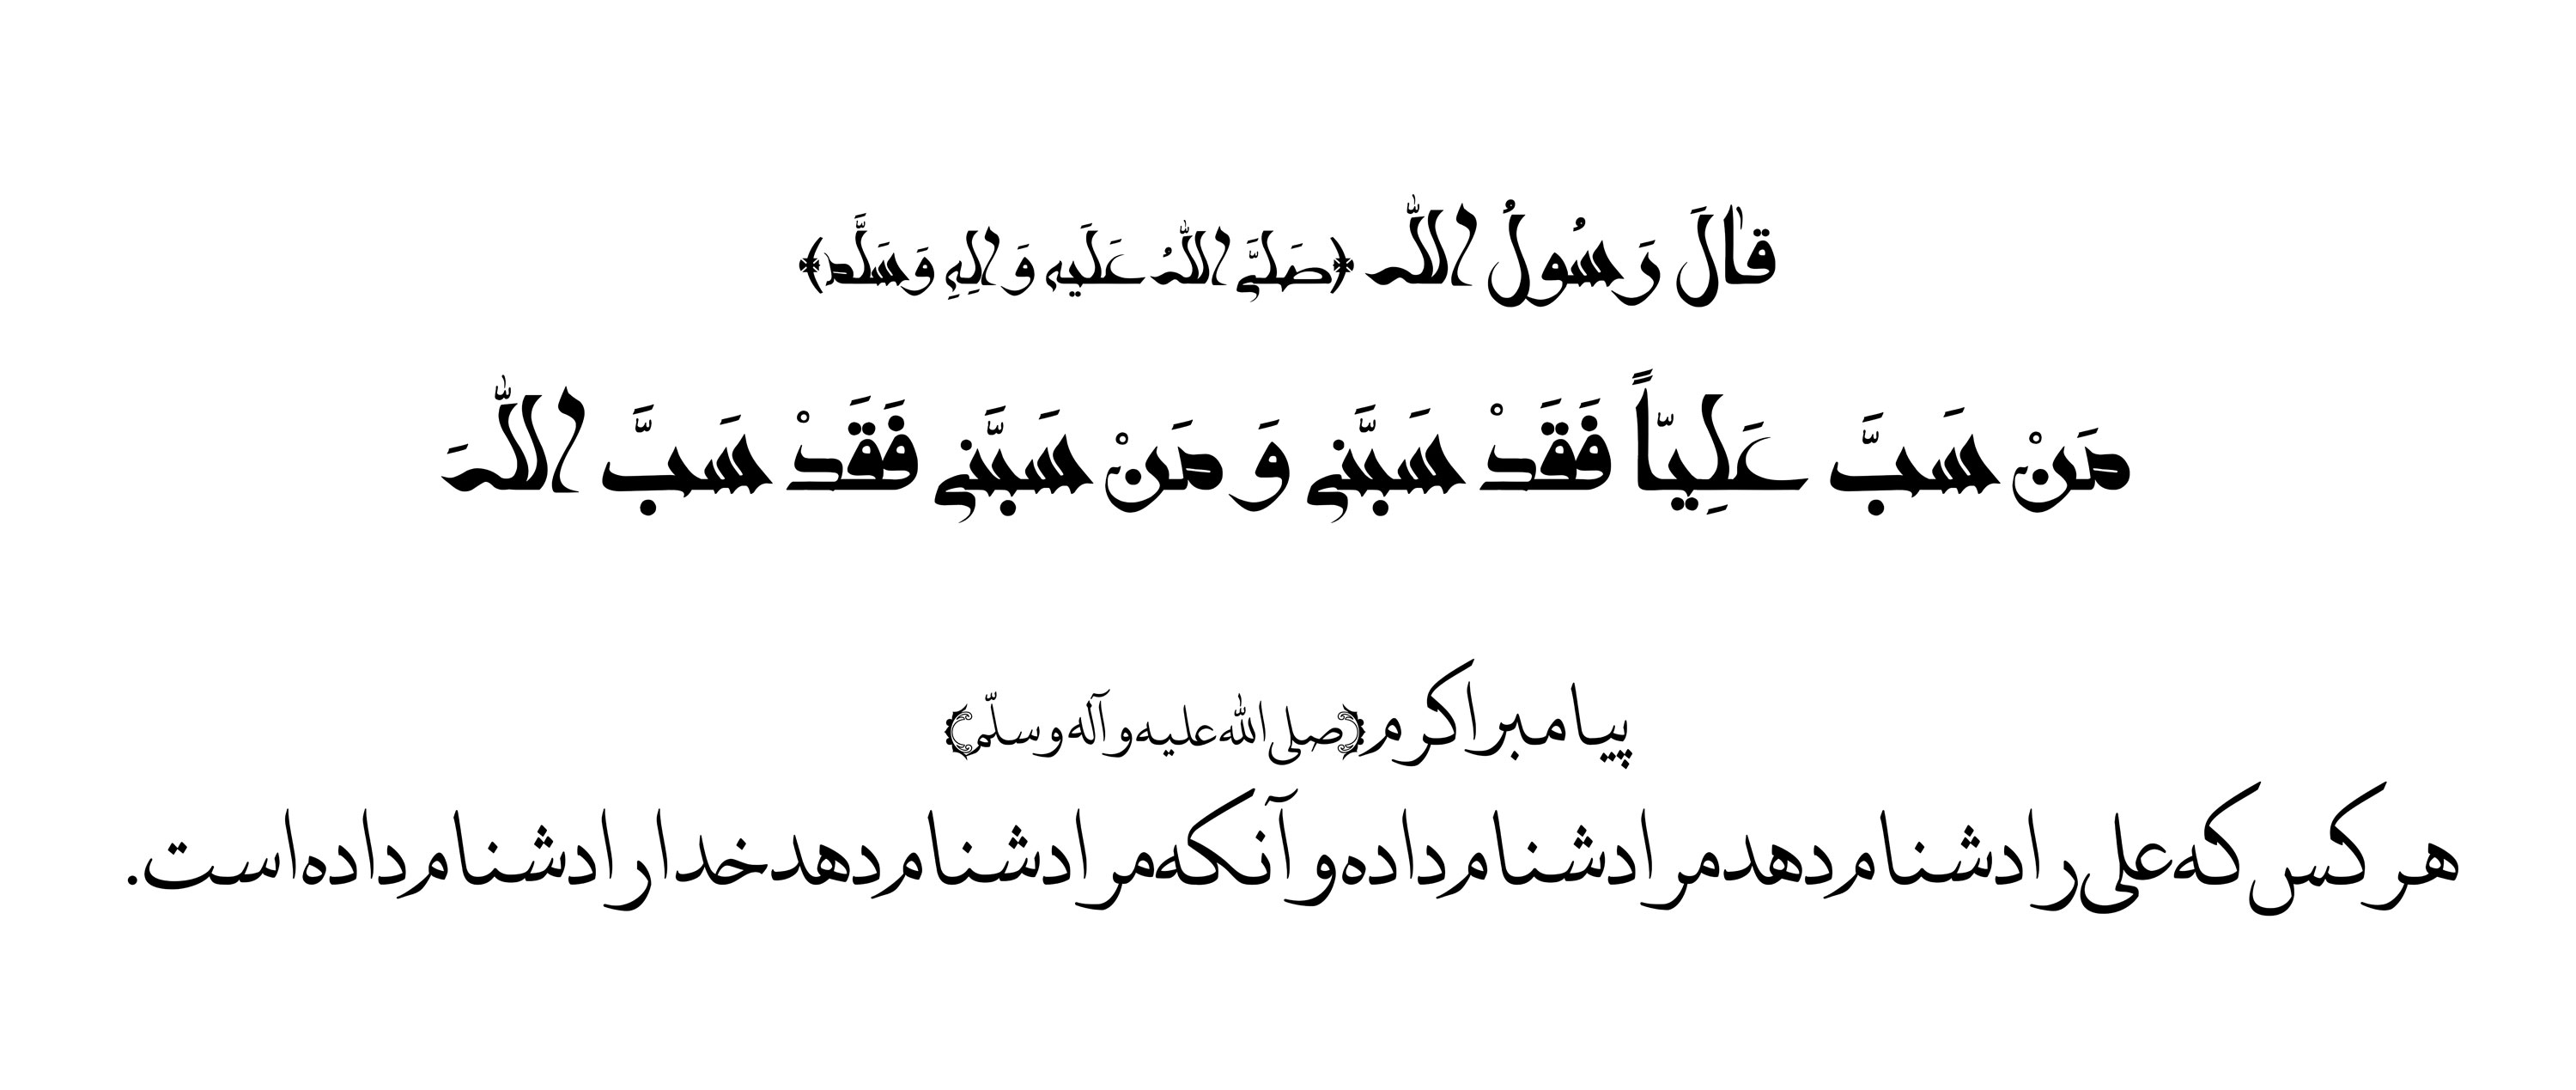 قٰالَ رَسُولُ اللّٰه ﴿صَلَّی اللّٰهُ عَلَیه وَ الِهِ وَسَلَّم﴾
مَنْ سَبَّ عَلِیّاً فَقَدْ سَبَّنی وَ مَنْ سَبَّنی فَقَدْ سَبَّ اللّٰهَ
پیامبر اکرم ﴿صلی الله علیه و آله و سلّم﴾
هر کس که علی را دشنام دهد مرا دشنام داده و آنکه مرا دشنام دهد خدا را دشنام داده است.